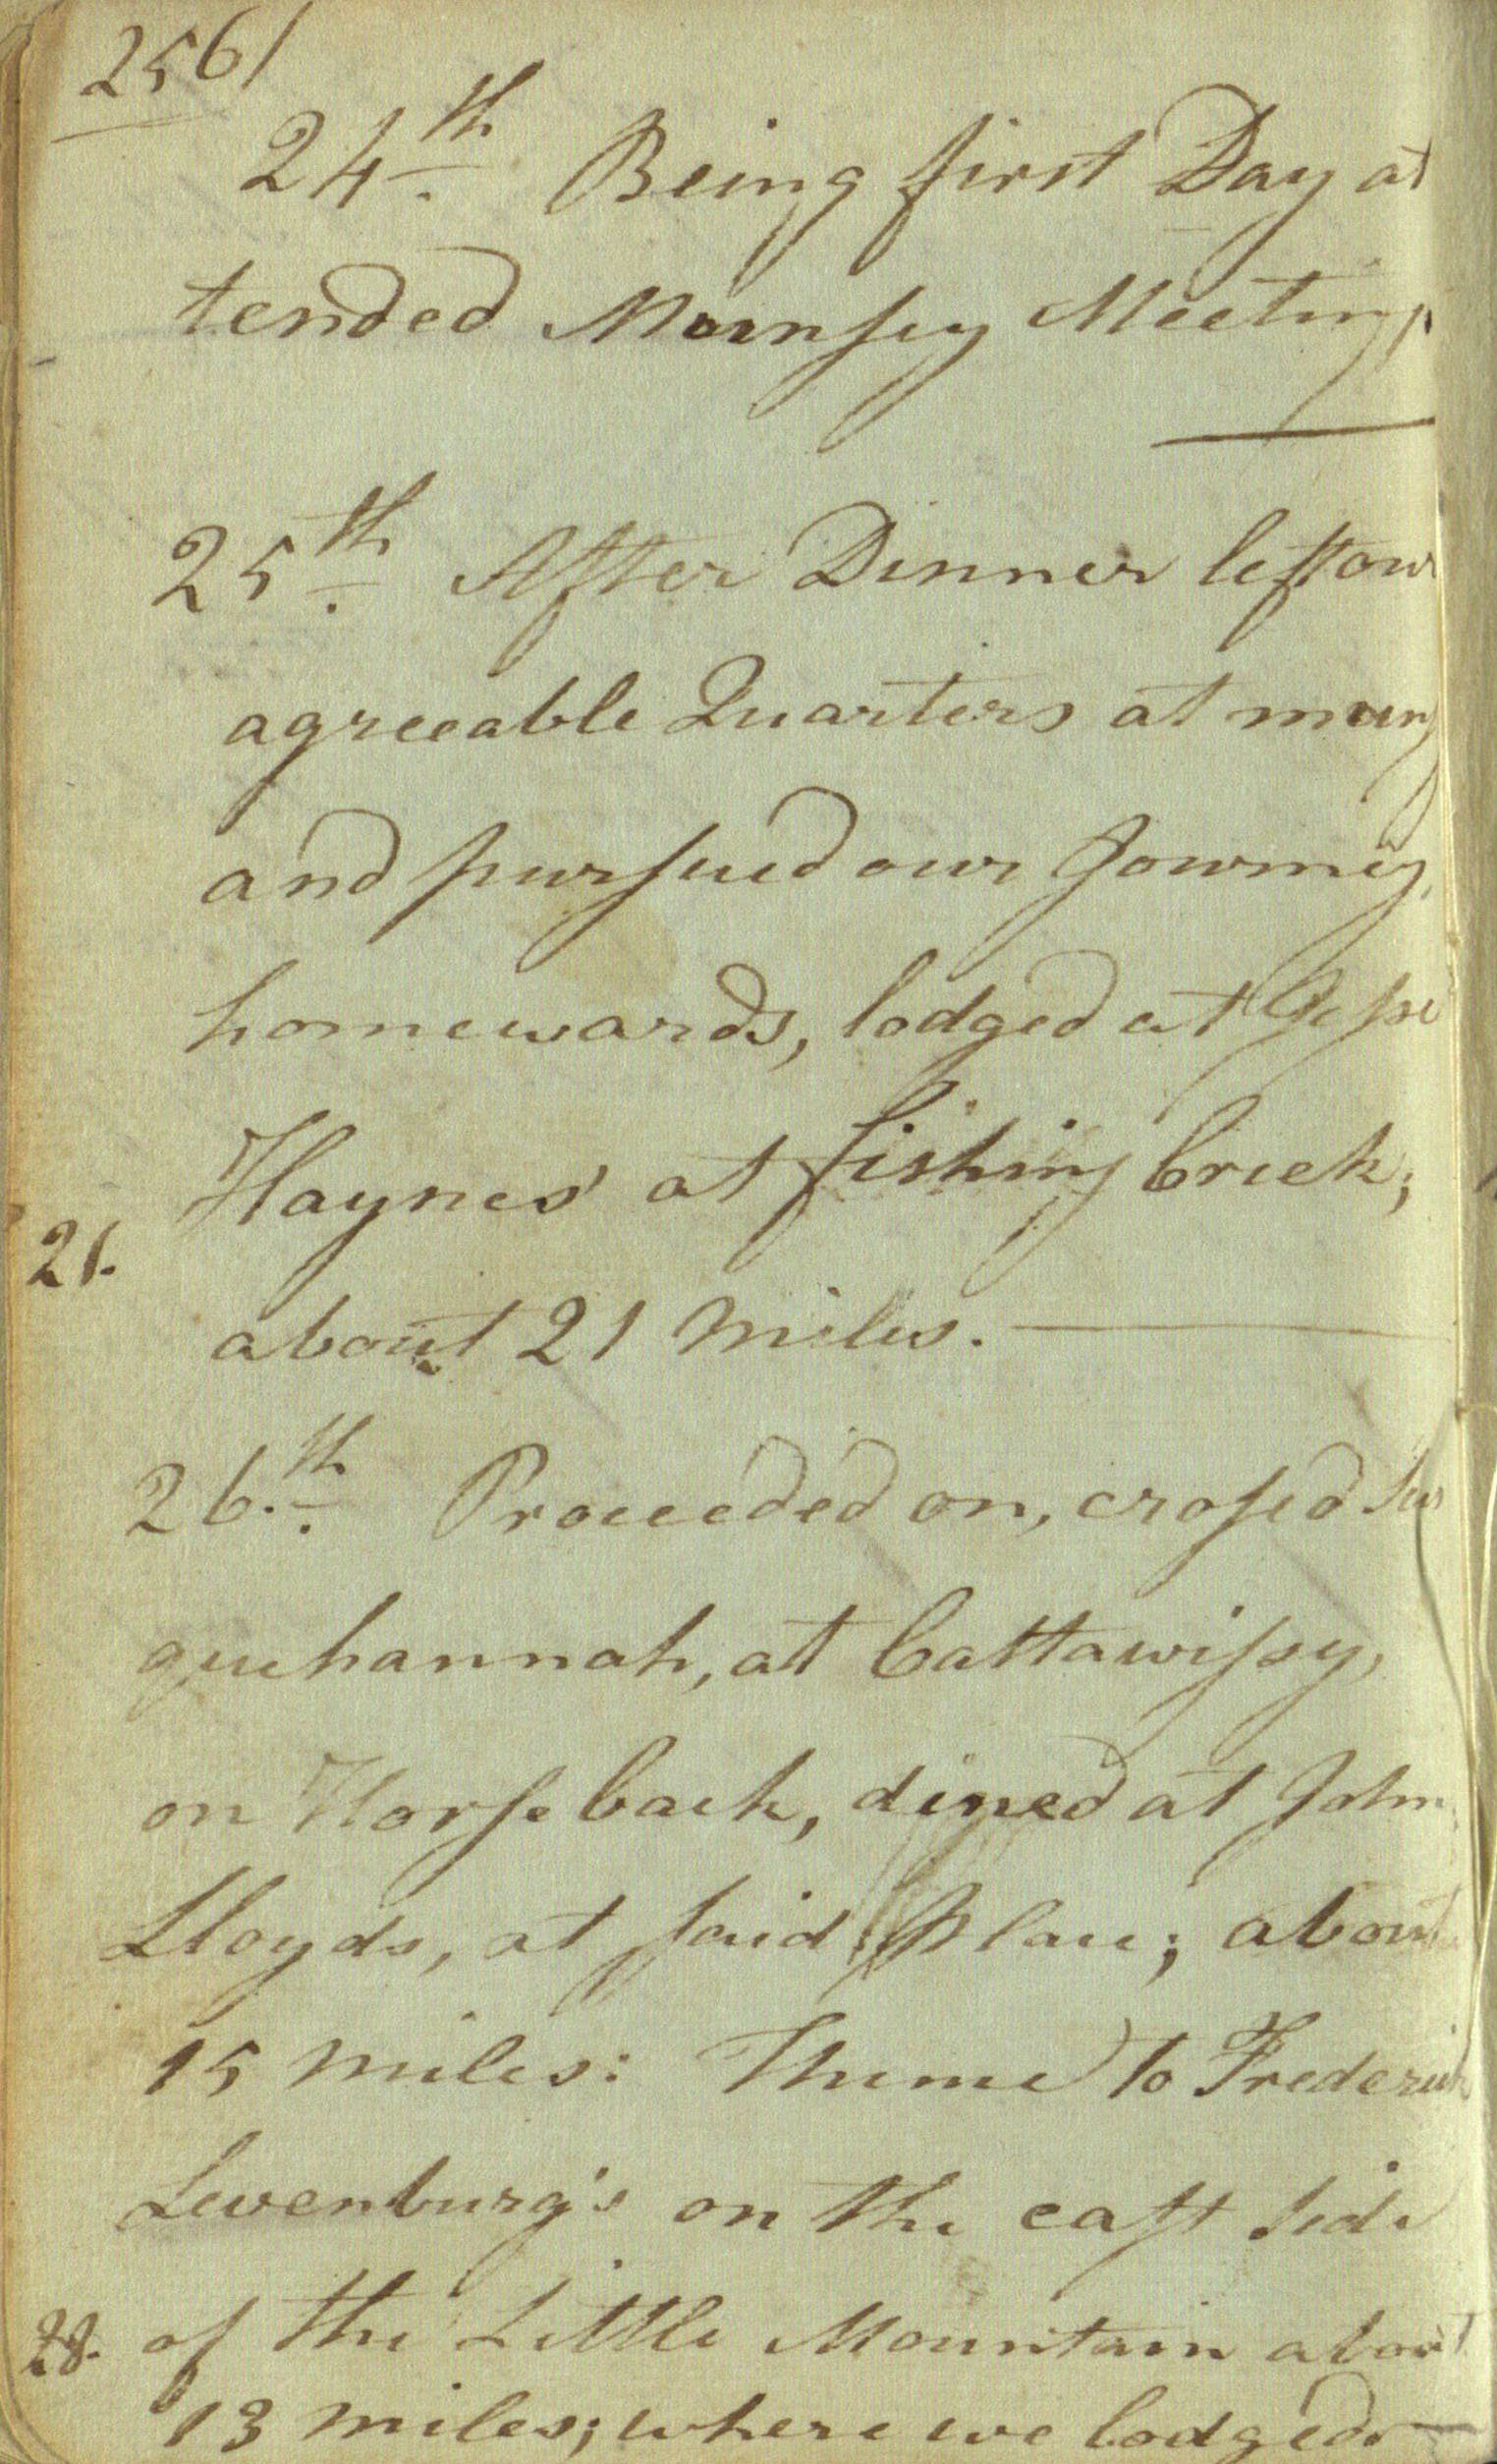 256/
24th. Being first Day at
tended Munsey Meeting.
25th. After Dinner left our
agreeable Quarters at muny
and pursued our Journey,
homewards, lodged at Jesse
Haynes' at fishing Creek;
21.
about 21 Miles.
26.th. Proceeded on, crossed Sus
quehannah, at Cattawissy,
on Horse back, dined at John
Lloyds, at said Place; about
15 miles: Thence to Frederick
Levenburg's on the east side
28. of the Little Mountain about
13 miles; where we lodged.